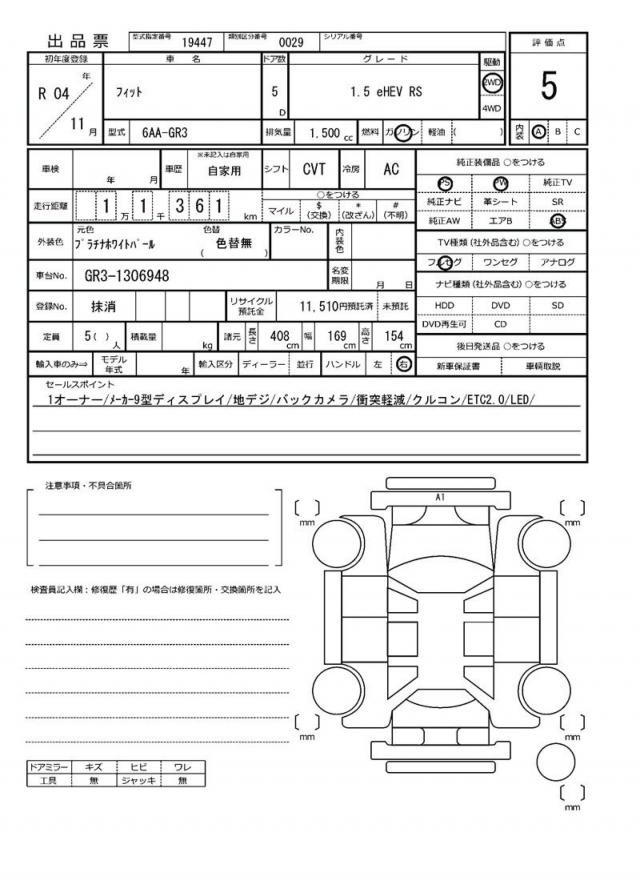 出品票 型式指定番号 19447 類別区分番号 0029 シリアル番号
評価点
5
内装 A B C
初年度登録 車名 ドア数 グレード 駆動
R 04 年 11 月 フィット 5 D 1.5 eHEV RS 2WD 4WD
型式 6AA-GR3 排気量 1.500 cc 燃料 ガソリン 軽油 ( )
車検 年 月 車歴 ※未記入は自家用 自家用 シフト CVT 冷房 AC
走行距離 1 万 1 千 3 6 1 km ○をつける
マイル $ (交換) * (改ざん) # (不明)
外装色 元色 プラチナホワイトパール 色替 ( 色替無 ) カラーNo. 内装色
車台No. GR3-1306948 名変期限 月 日
登録No. 抹消 リサイクル預託金 11,510円預託済 未預託
定員 5( ) 人 積載量 kg 諸元 長さ 408 cm 幅 169 cm 高さ 154 cm
輸入車のみ⇒ モデル年式 年 輸入区分 ディーラー 並行 ハンドル 左 右
純正装備品 ○をつける
PS PW 純正TV
純正ナビ 革シート SR
純正AW エアB ABS
TV種類 (社外品含む) ○をつける
フルセグ ワンセグ アナログ
ナビ種類 (社外品含む) ○をつける
HDD DVD SD
DVD再生可 CD
後日発送品 ○をつける
新車保証書 車輌取説
セールスポイント
1オーナー/メーカー9型ディスプレイ/地デジ/バックカメラ/衝突軽減/クルコン/ETC2.0/LED/
注意事項・不具合箇所
検査員記入欄：修復歴「有」の場合は修復箇所・交換箇所を記入
A1
mm
mm
mm
mm
mm
ドアミラー キズ ヒビ ワレ
工具 無 ジャッキ 無